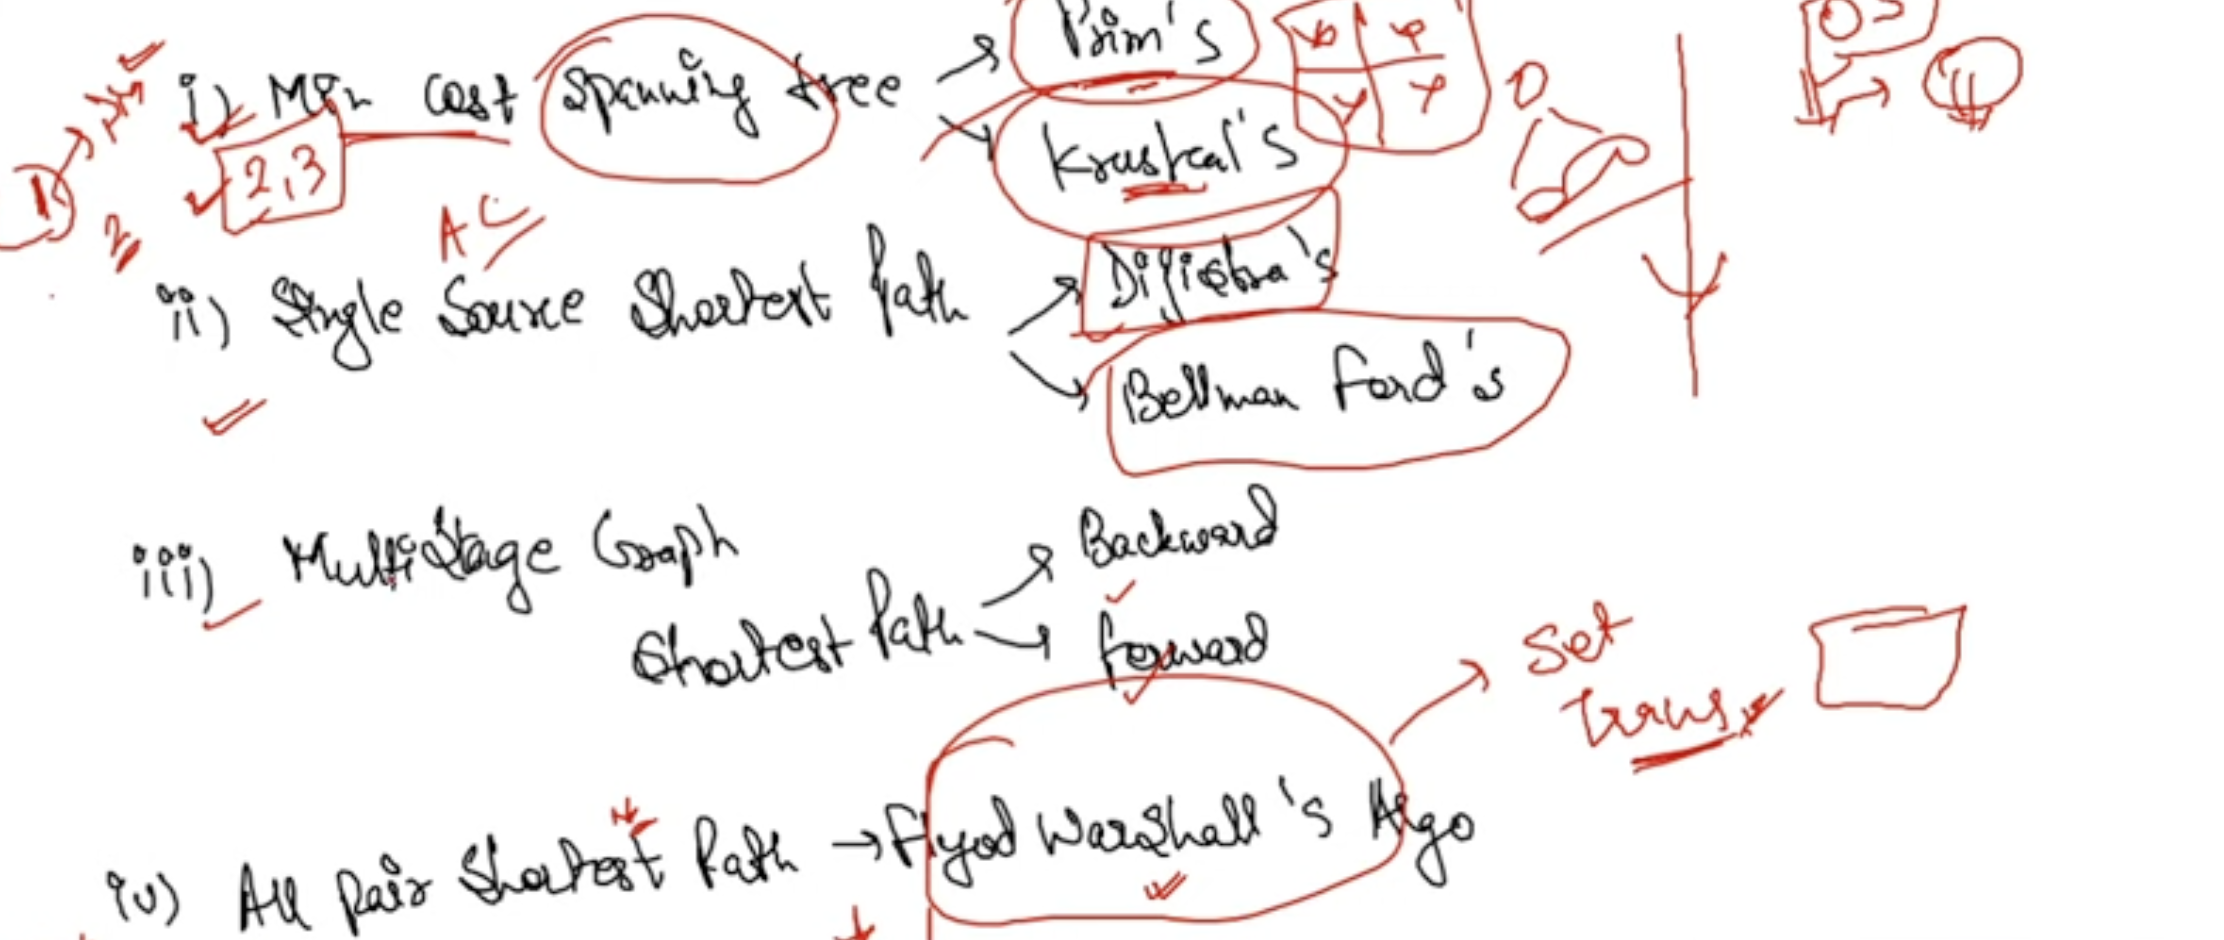 i) Min Cost Spanning tree → Prim's
Kruskal's
2,3
ii) Single Source Shortest Path → Dijistra's
Bellman Ford's
iii) MultiStage Graph
Shortest Path → Backward
forward
Set
Trans.
iv) All Pair Shortest Path → Flyod Warshall's Algo